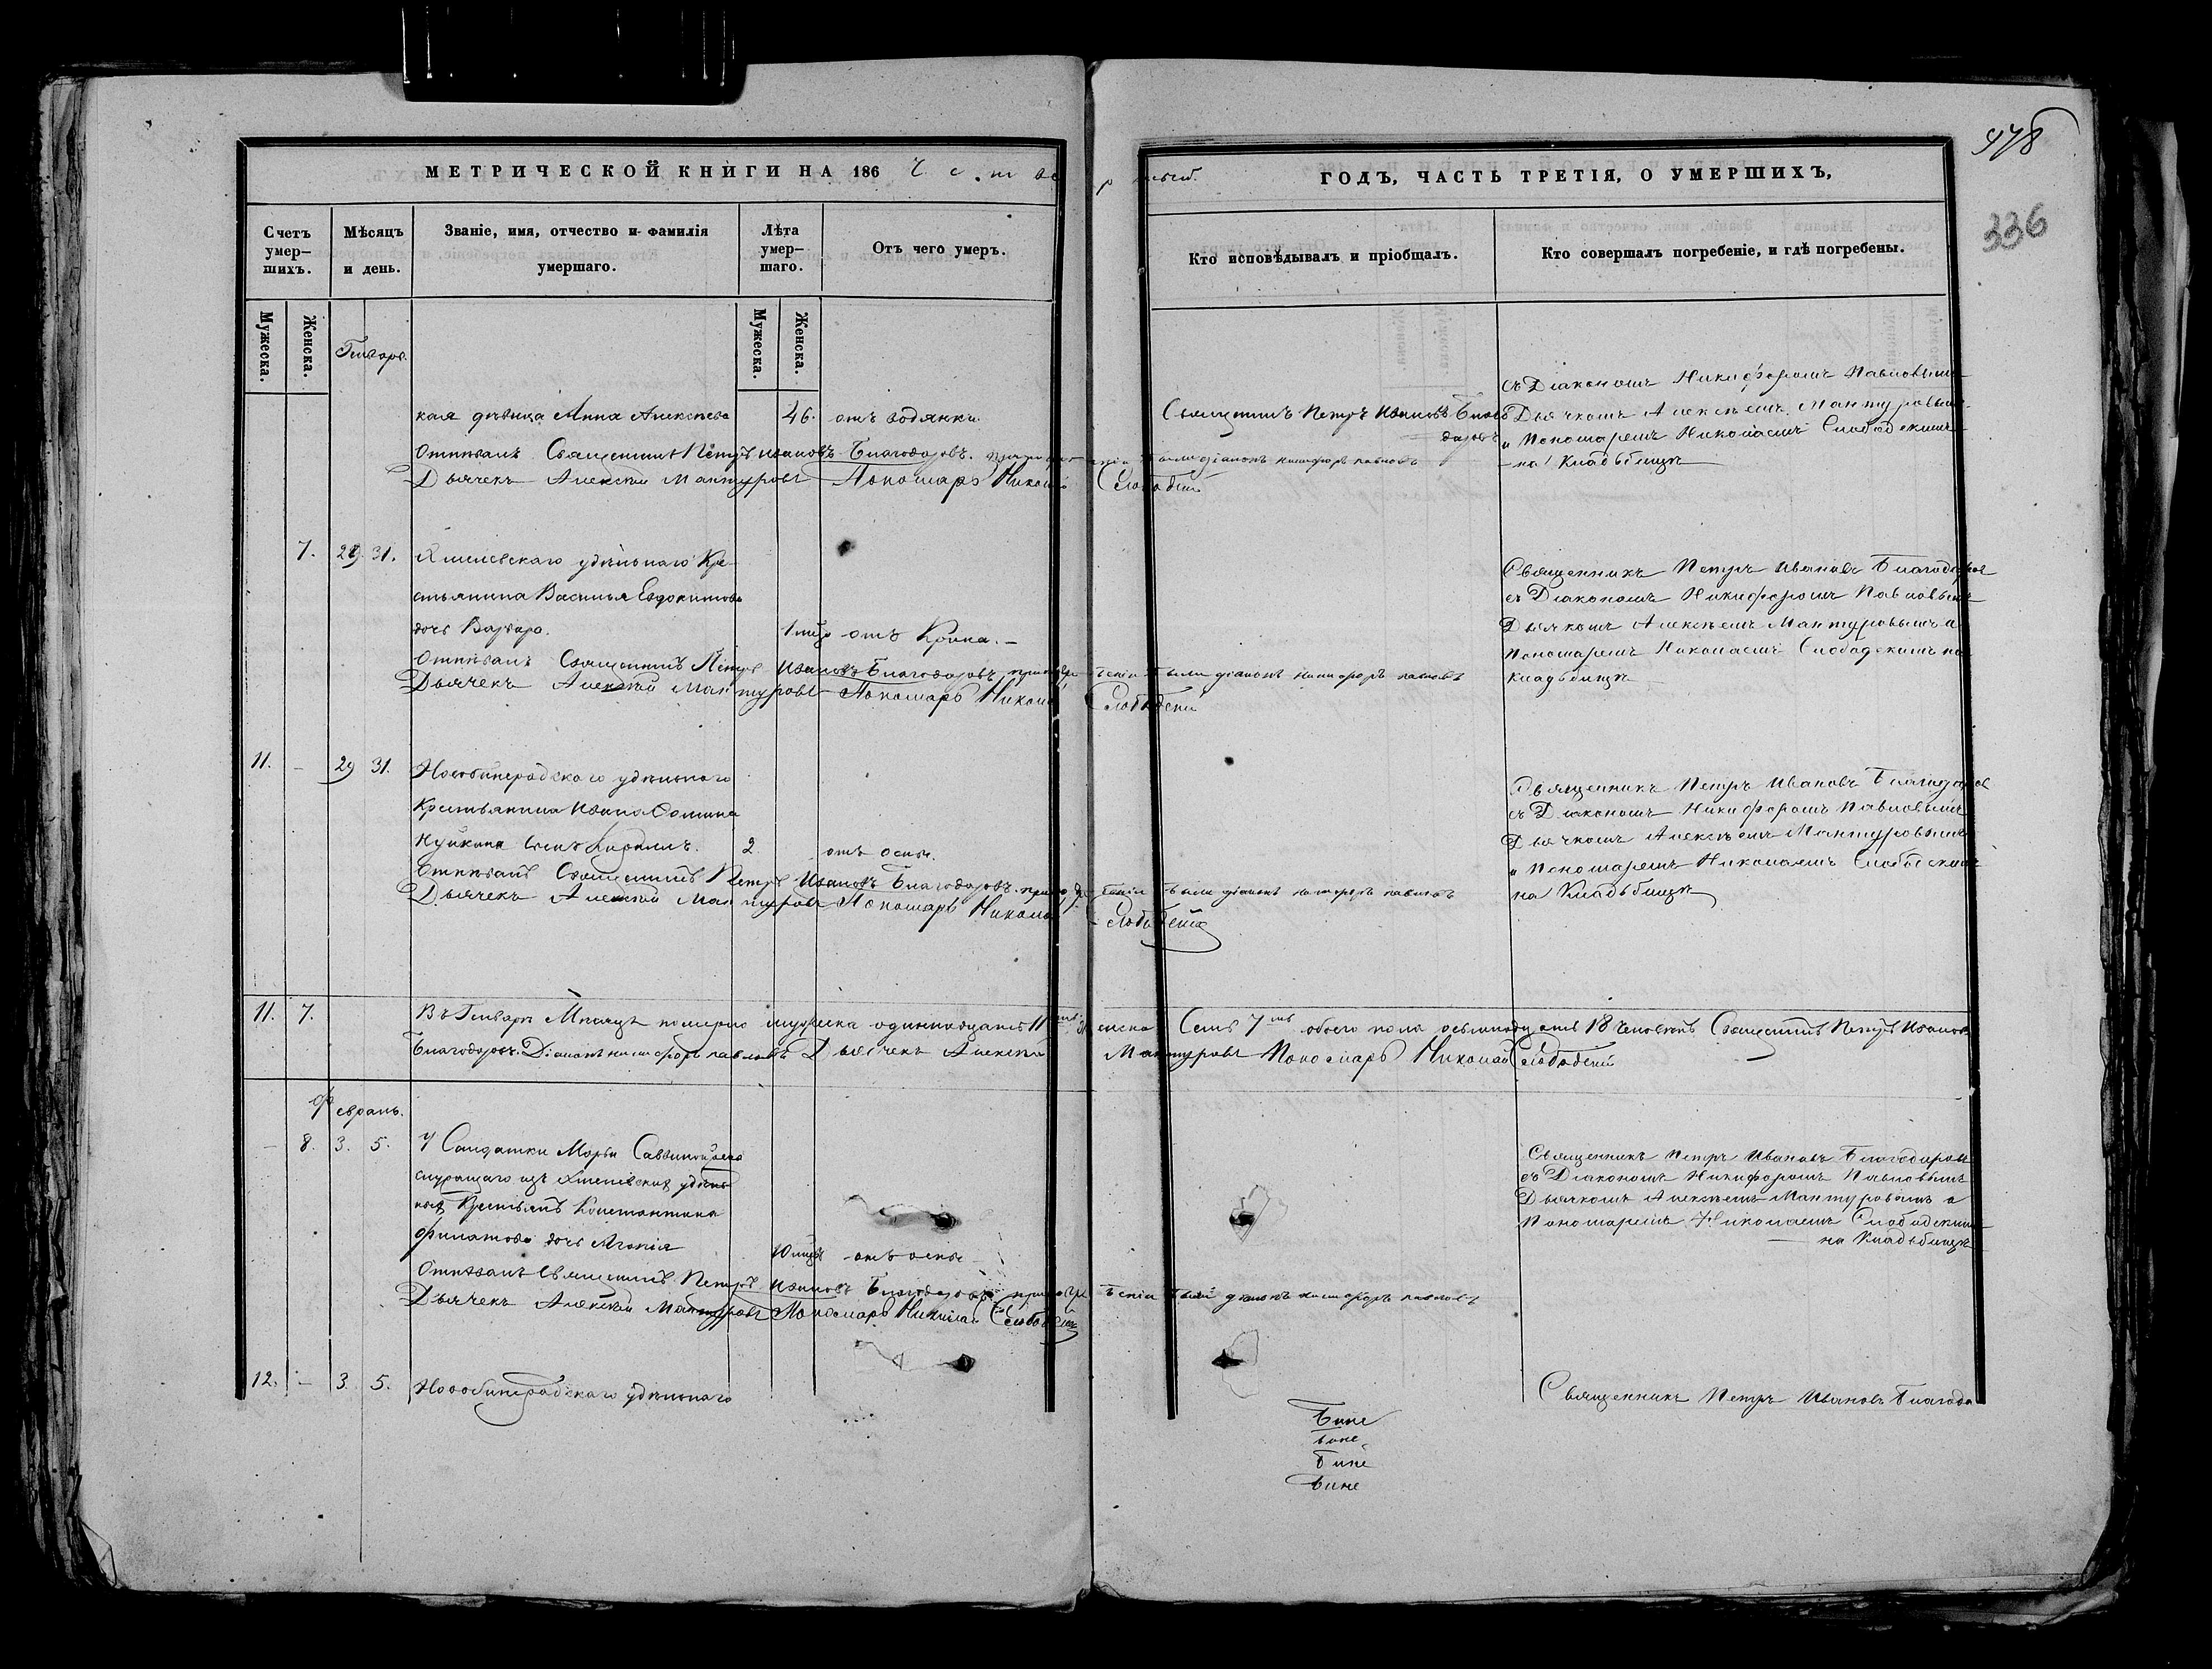 478
336
МЕТРИЧЕСКОЙ КНИГИ НА 186 Четвертый ГОДЪ, ЧАСТЬ ТРЕТІЯ, О УМЕРШИХЪ,
Счетъ умер-шихъ.
Мѣсяцъ и день.
Званіе, имя, отчество и фамилія умершаго.
Лѣта умер-шаго.
Отъ чего умеръ.
Кто исповѣдывалъ и пріобщалъ.
Кто совершалъ погребеніе, и гдѣ погребены.
Мужеска.
Женска.
Мужеска.
Женска.
Генварь.
кая дѣвица Анна Алексѣева
46. отъ водянки.
Священникъ Петръ Ивановъ Благодаровъ
съ Діакономъ Никифоромъ Павловымъ
Дьячкомъ Алексѣемъ Мантуровымъ
и Пономаремъ Николаемъ Слободскимъ
на Кладьбищѣ
Отпѣвалъ Священникъ Петръ Ивановъ Благодаровъ. при были діаконъ Никифоръ Павловъ
Дьячекъ Алексѣй Мантуровъ Пономарь Николай
7. 29 31. удѣльнаго Кре-
стьянина Василья Евдокимова
дочь Варвара.
отъ крика.
Священникъ Петръ Ивановъ Благодаровъ
съ Діакономъ Никифоромъ Павловымъ
Дьячкомъ Алексѣемъ Мантуровымъ и
Пономаремъ Николаемъ Слободскимъ на
Кладьбищѣ
Отпѣвалъ Священникъ Петръ Ивановъ Благодаровъ при были діаконъ Никифоръ Павловъ
Дьячекъ Алексѣй Мантуровъ Пономарь Николай
11. - 29 31. удѣльнаго
Крестьянина Ивана Ѳомина
сынъ Кириллъ.
2 отъ оспы.
Священникъ Петръ Ивановъ Благодаровъ
съ Діакономъ Никифоромъ Павловымъ
Дьячкомъ Алексѣемъ Мантуровымъ
и Пономаремъ Николаемъ Слободскимъ
на Кладьбищѣ
Отпѣвалъ Священникъ Петръ Ивановъ Благодаровъ при были діаконъ Никифоръ Павловъ
Дьячекъ Алексѣй Мантуровъ Пономарь Николай
11. 7. Въ Генварѣ Мѣсяцѣ померло мужеска одиннадцать 11ть женска Семь 7мь обоего пола осьмнадцать 18 человѣкъ Священникъ Петръ Ивановъ
Благодаровъ. Діаконъ Никифоръ Павловъ Дьячекъ Алексѣй Мантуровъ Пономарь Николай
Февраль.
- 8. 3. 5. У Салдатки Марьи
изъ
Крестьянъ Константина
Филатова дочь Агапія
отъ оспы
Священникъ Петръ Ивановъ Благодаровъ
съ Діакономъ Никифоромъ Павловымъ
Дьячкомъ Алексѣемъ Мантуровымъ и
Пономаремъ Николаемъ Слободскимъ
на Кладьбищѣ
Отпѣвалъ Священникъ Петръ Ивановъ Благодаровъ при были діаконъ Никифоръ Павловъ
Дьячекъ Алексѣй Мантуровъ Пономарь Николай
12. - 3. 5. удѣльнаго
Священникъ Петръ Ивановъ Благода